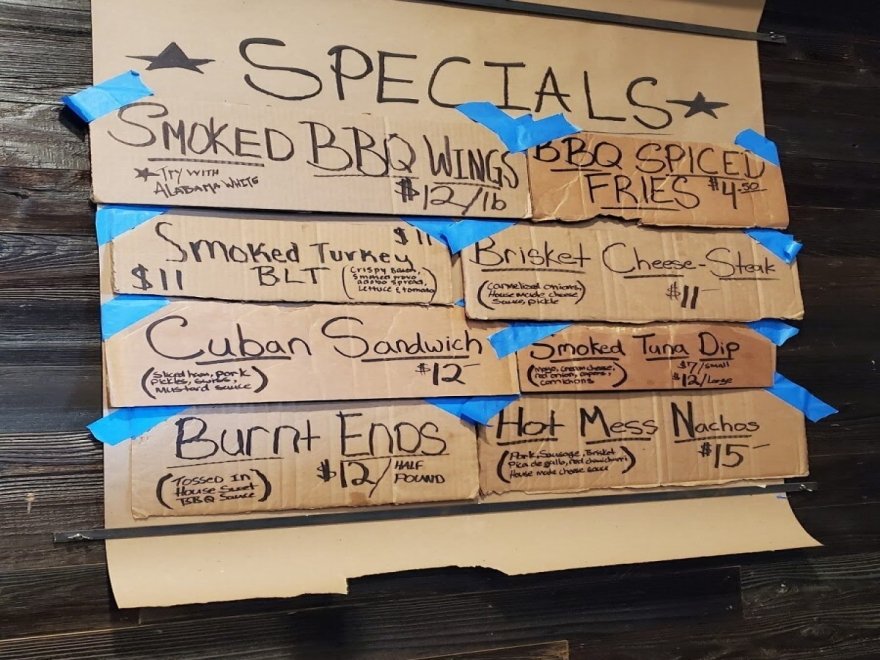 ★ SPECIALS ★
SMOKED BBQ WINGS
★TRY WITH
ALABAMA WHITE
$12/lb
BBQ SPICED
FRIES $4.50
Smoked Turkey $11
$11 BLT
(Crispy Bacon,
Smoked provo
adobo spread,
Lettuce & tomato)
Brisket Cheese-Steak
(Carmelized onions
House made cheese
Sauce, pickle)
$11-
Cuban Sandwich
(Sliced ham, pork
pickles, swiss,
mustard sauce)
$12-
Smoked Tuna Dip
(Mayo, cream cheese,
red onion, capers,
cornichons)
$7/small
$12/Large
Burnt Ends
(Tossed In
House Sweet
BBQ Sauce)
$12/HALF
POUND
Hot Mess Nachos
(Pork, Sausage, Brisket
Pica de gallo, red
House Made cheese sauce)
$15-